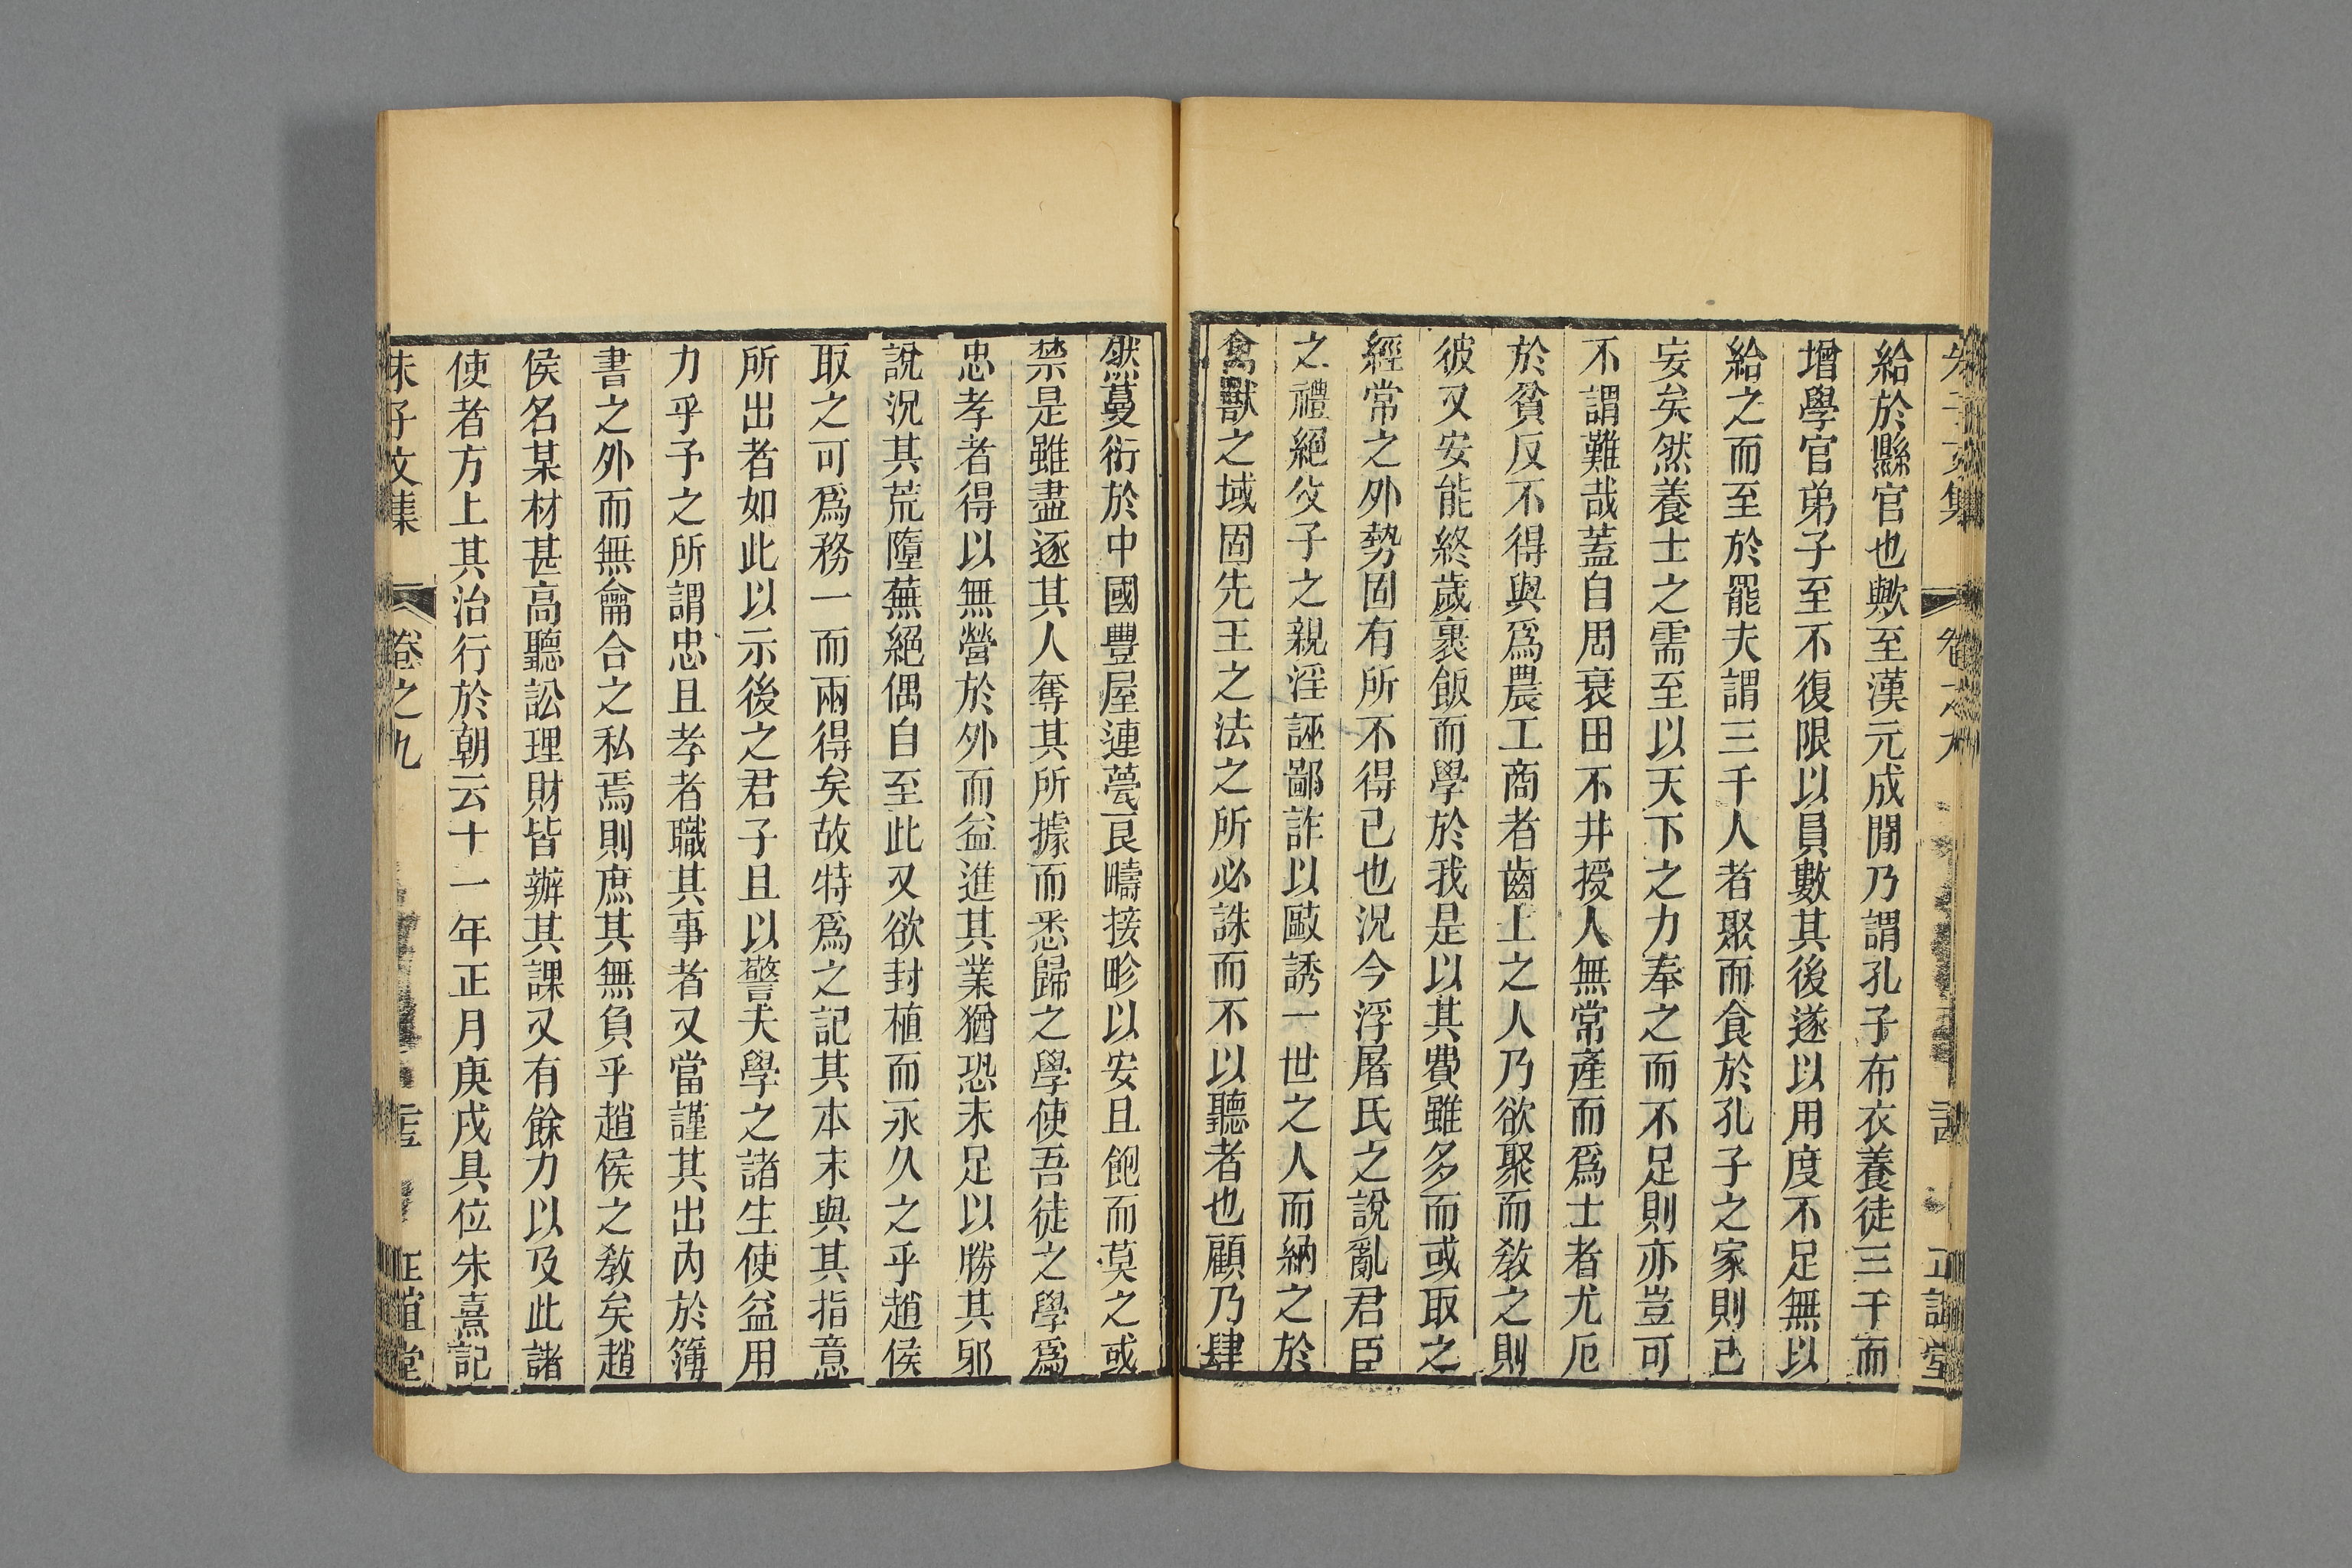 給於縣官也歟至漢元成閒乃謂孔子布衣養徒三千而
增學官弟子至不復限以員數其後遂以用度不足無以
給之而至於罷夫謂三千人者聚而食於孔子之家則已
妄矣然養士之需至以天下之力奉之而不足則亦豈可
不謂難哉蓋自周衰田不井授人無常產而爲士者尤厄
於貧反不得與爲農工商者齒上之人乃欲聚而敎之則
彼又安能終歲裹飯而學於我是以其費雖多而或取之
經常之外勢固有所不得已也況今浮屠氏之說亂君臣
之禮絕父子之親淫誣鄙詐以敺誘一世之人而納之於
禽獸之域固先王之法之所必誅而不以聽者也顧乃肆
然蔓衍於中國豐屋連甍良疇接畛以安且飽而莫之或
禁是雖盡逐其人奪其所據而悉歸之學使吾徒之學爲
忠孝者得以無營於外而益進其業猶恐未足以勝其邪
說況其荒墮蕪絕偶自至此又欲封植而永久之乎趙侯
取之可爲務一而兩得矣故特爲之記其本末與其指意
所出者如此以示後之君子且以警夫學之諸生使益用
力乎予之所謂忠且孝者職其事者又當謹其出內於簿
書之外而無龠合之私焉則庶其無負乎趙侯之敎矣趙
侯名某材甚高聽訟理財皆辦其課又有餘力以及此諸
使者方上其治行於朝云十一年正月庚戌具位朱熹記
朱子文集 卷之九 正誼堂